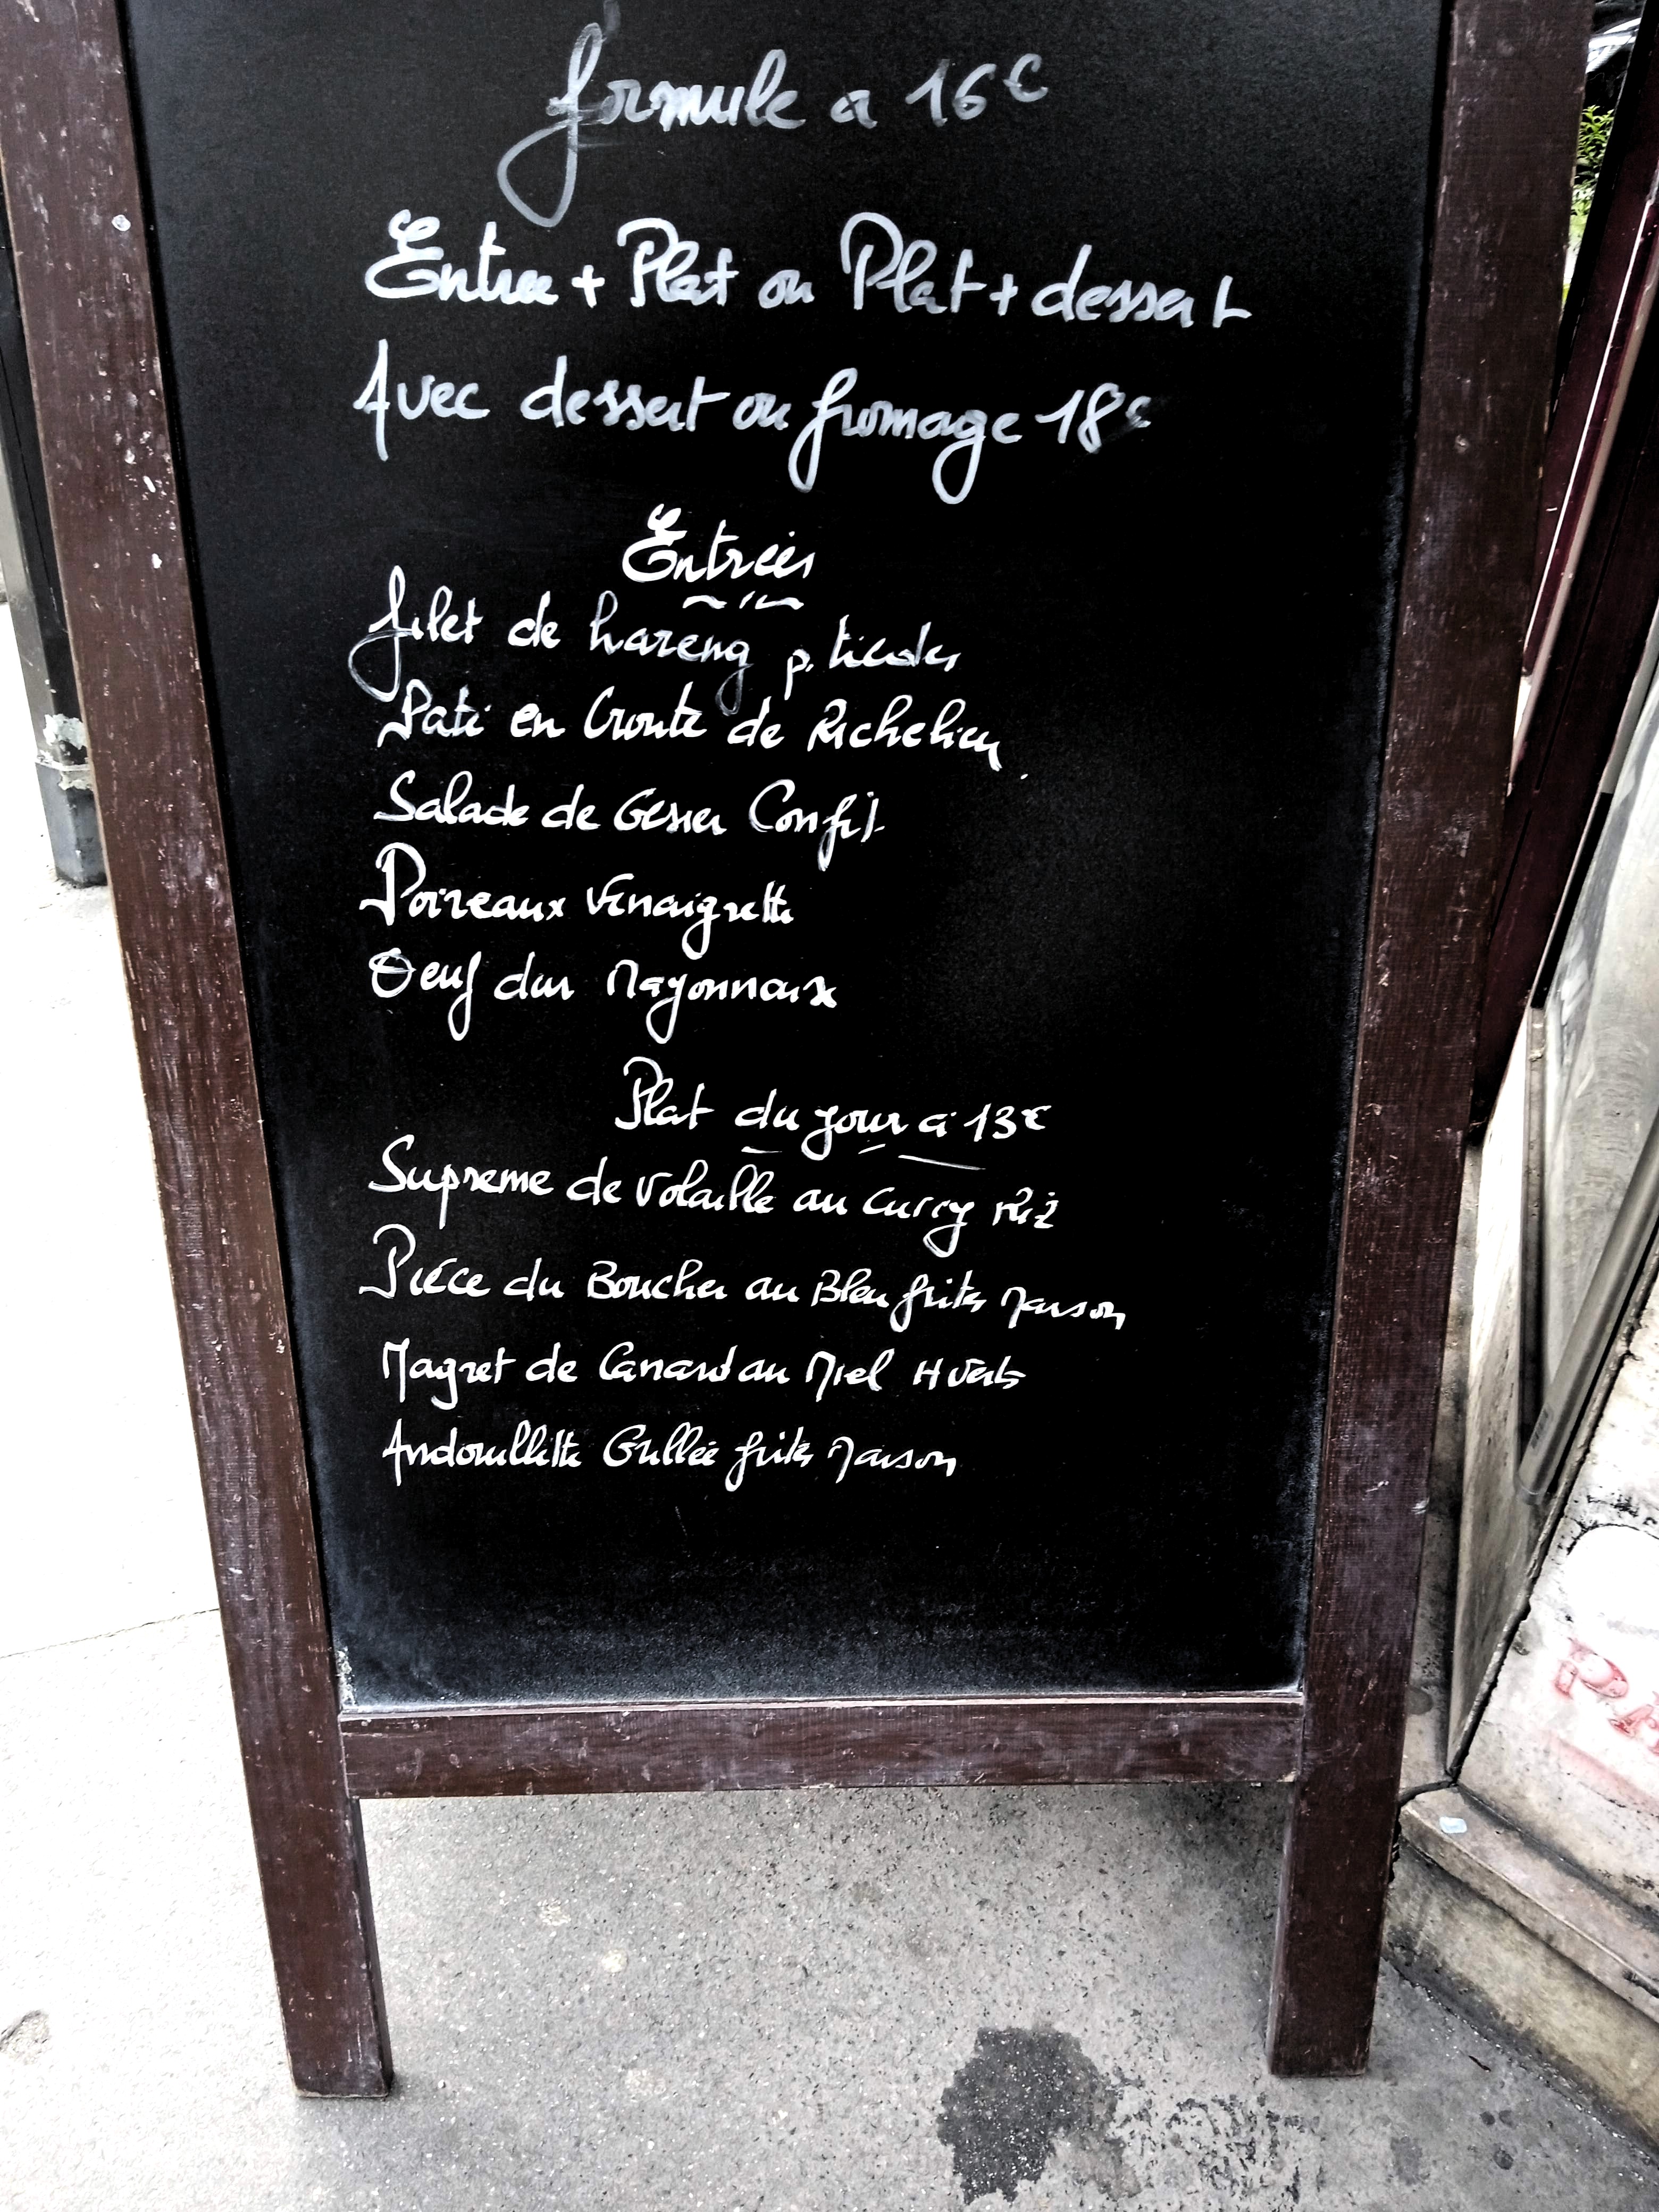 formule a 16€
Entree + Plat ou Plat + dessert
Avec dessert ou fromage 18€
Entrées
filet de hareng p. tiedes
Paté en Croute de Richelieu.
Salade de Gesier Confit
Poireaux Vinaigrette
Oeuf dur Mayonnaise
Plat du jour a 13€
Supreme de Volaille au Curry riz
Piéce du Boucher au Bleu frites Maison
Magret de Canard au Miel H Verts
Andouillette Grillée frites Maison